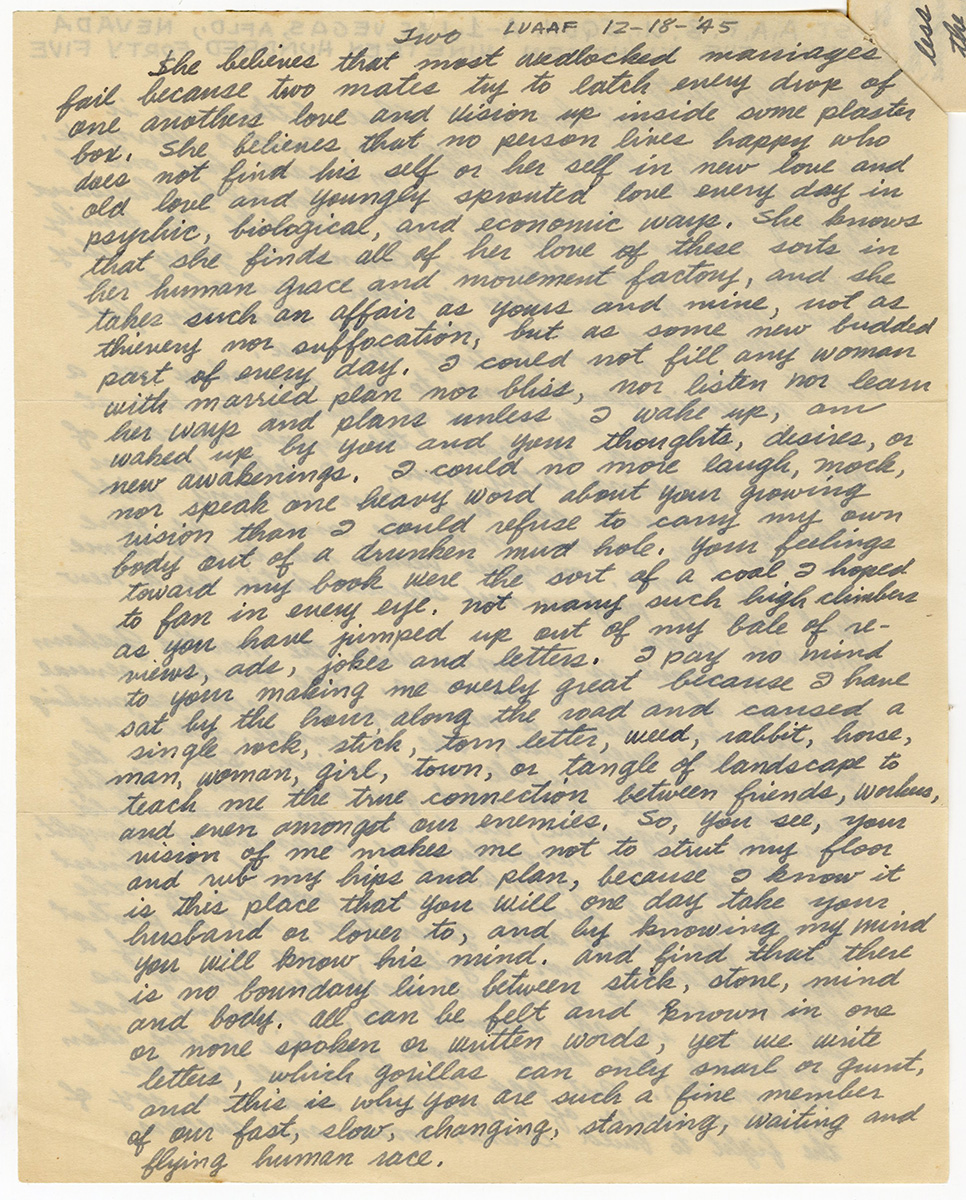 Two LVAAF 12-18-'45
less
the
She believes that most wedlocked marriages
fail because two mates try to latch every drop of
one anothers love and vision up inside some plaster
box. She believes that no person lives happy who
does not find his self or her self in new love and
old love and youngly sprouted love every day in
psychic, biological, and economic ways. She knows
that she finds all of her love of these sorts in
her human grace and movement factory, and she
takes such an affair as yours and mine, not as
thievery nor suffocation, but as some new budded
part of every day. I could not fill any woman
with married plan nor bliss, nor listen nor learn
her ways and plans unless I wake up, am
waked up by you and your thoughts, desires, or
new awakenings. I could no more laugh, mock,
nor speak one heavy word about your growing
vision than I could refuse to carry my own
body out of a drunken mud hole. Your feelings
toward my book were the sort of a coal I hoped
to fan in every eye. Not many such high climbers
as you have jumped up out of my bale of re-
views, ads, jokes and letters. I pay no mind
to your making me overly great because I have
sat by the hour along the road and caused a
single rock, stick, torn letter, weed, rabbit, horse,
man, woman, girl, town, or tangle of landscape to
teach me the true connection between friends, workers,
and even amongst our enemies. So, you see, your
vision of me makes me not to strut my floor
and rub my hips and plan, because I know it
is this place that you will one day take your
husband or lover to, and by knowing my mind
you will know his mind. And find that there
is no boundary line between stick, stone, mind
and body. All can be felt and known in one
or none spoken or written words, yet we write
letters, which gorillas can only snarl or grunt,
and this is why you are such a fine member
of our fast, slow, changing, standing, waiting and
flying human race.